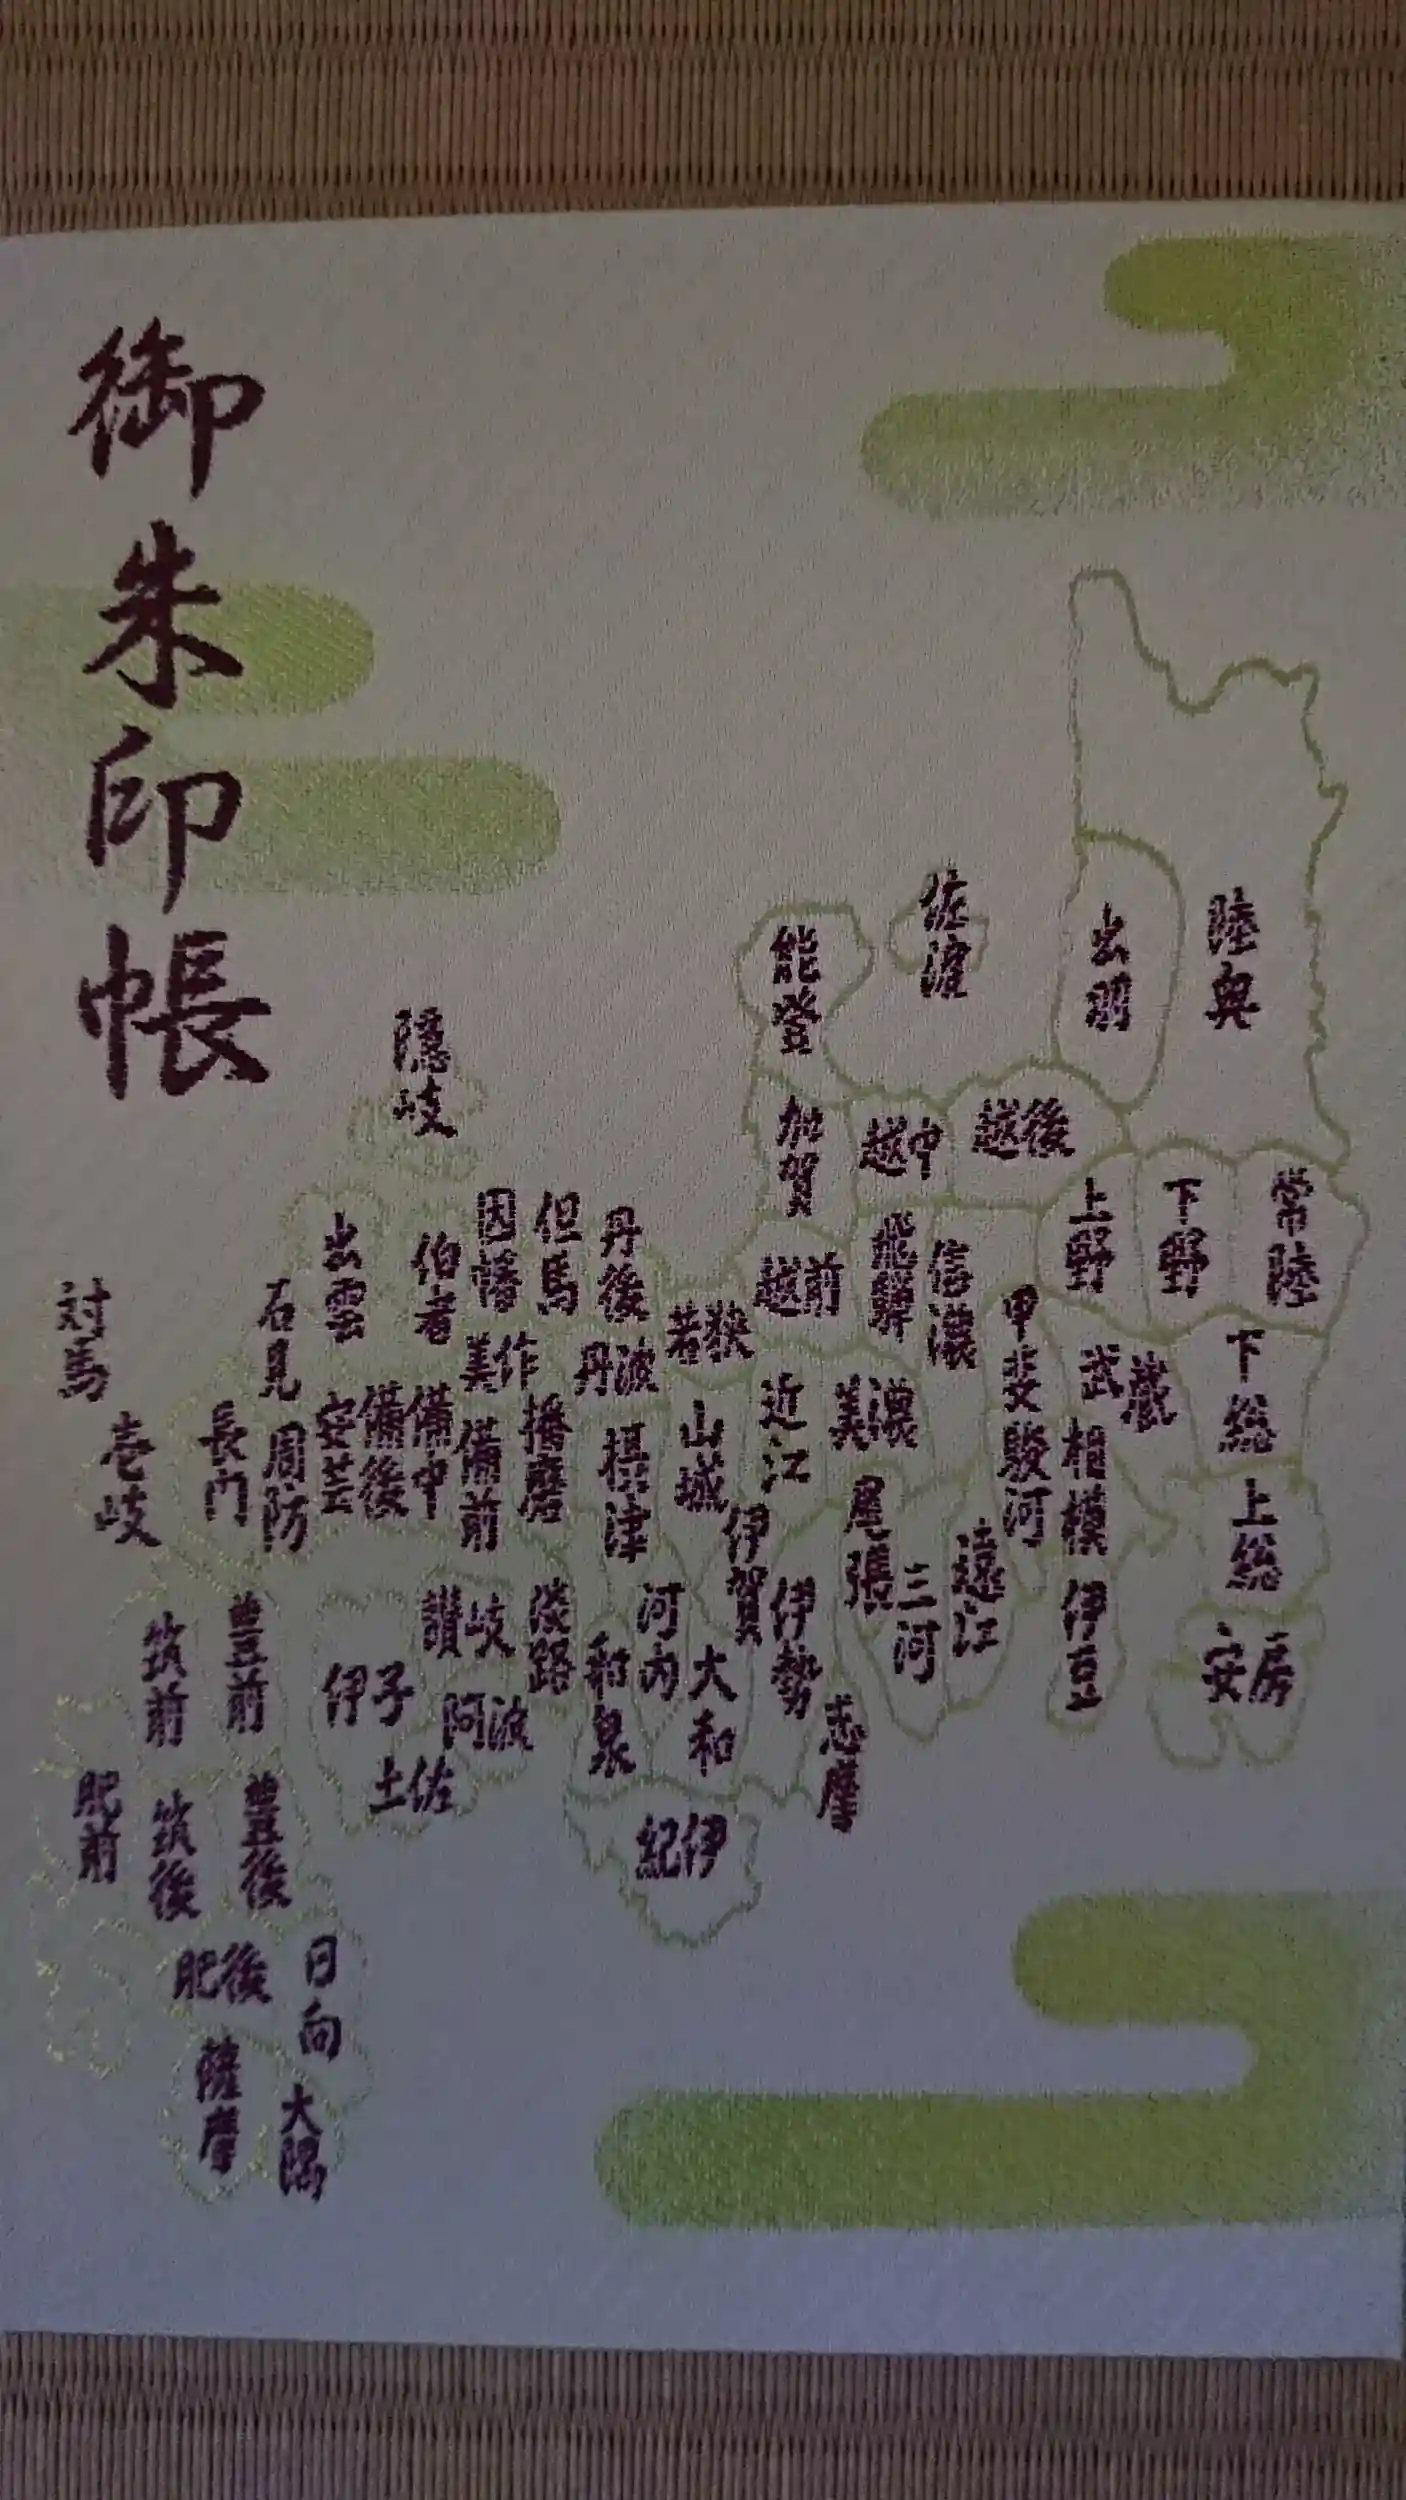 御朱印帳
陸奥
出羽
佐渡
能登
加賀
越中
越後
上野
下野
常陸
越前
飛騨
信濃
甲斐
武蔵
下総
上総
安房
相模
伊豆
駿河
遠江
三河
尾張
美濃
近江
若狭
山城
伊賀
伊勢
志摩
大和
河内
和泉
紀伊
摂津
丹波
丹後
但馬
因幡
美作
播磨
備前
備中
備後
伯者
隠岐
出雲
石見
安芸
周防
長門
淡路
讃岐
阿波
伊予
土佐
対馬
壱岐
筑前
豊前
肥前
筑後
豊後
肥後
日向
薩摩
大隅